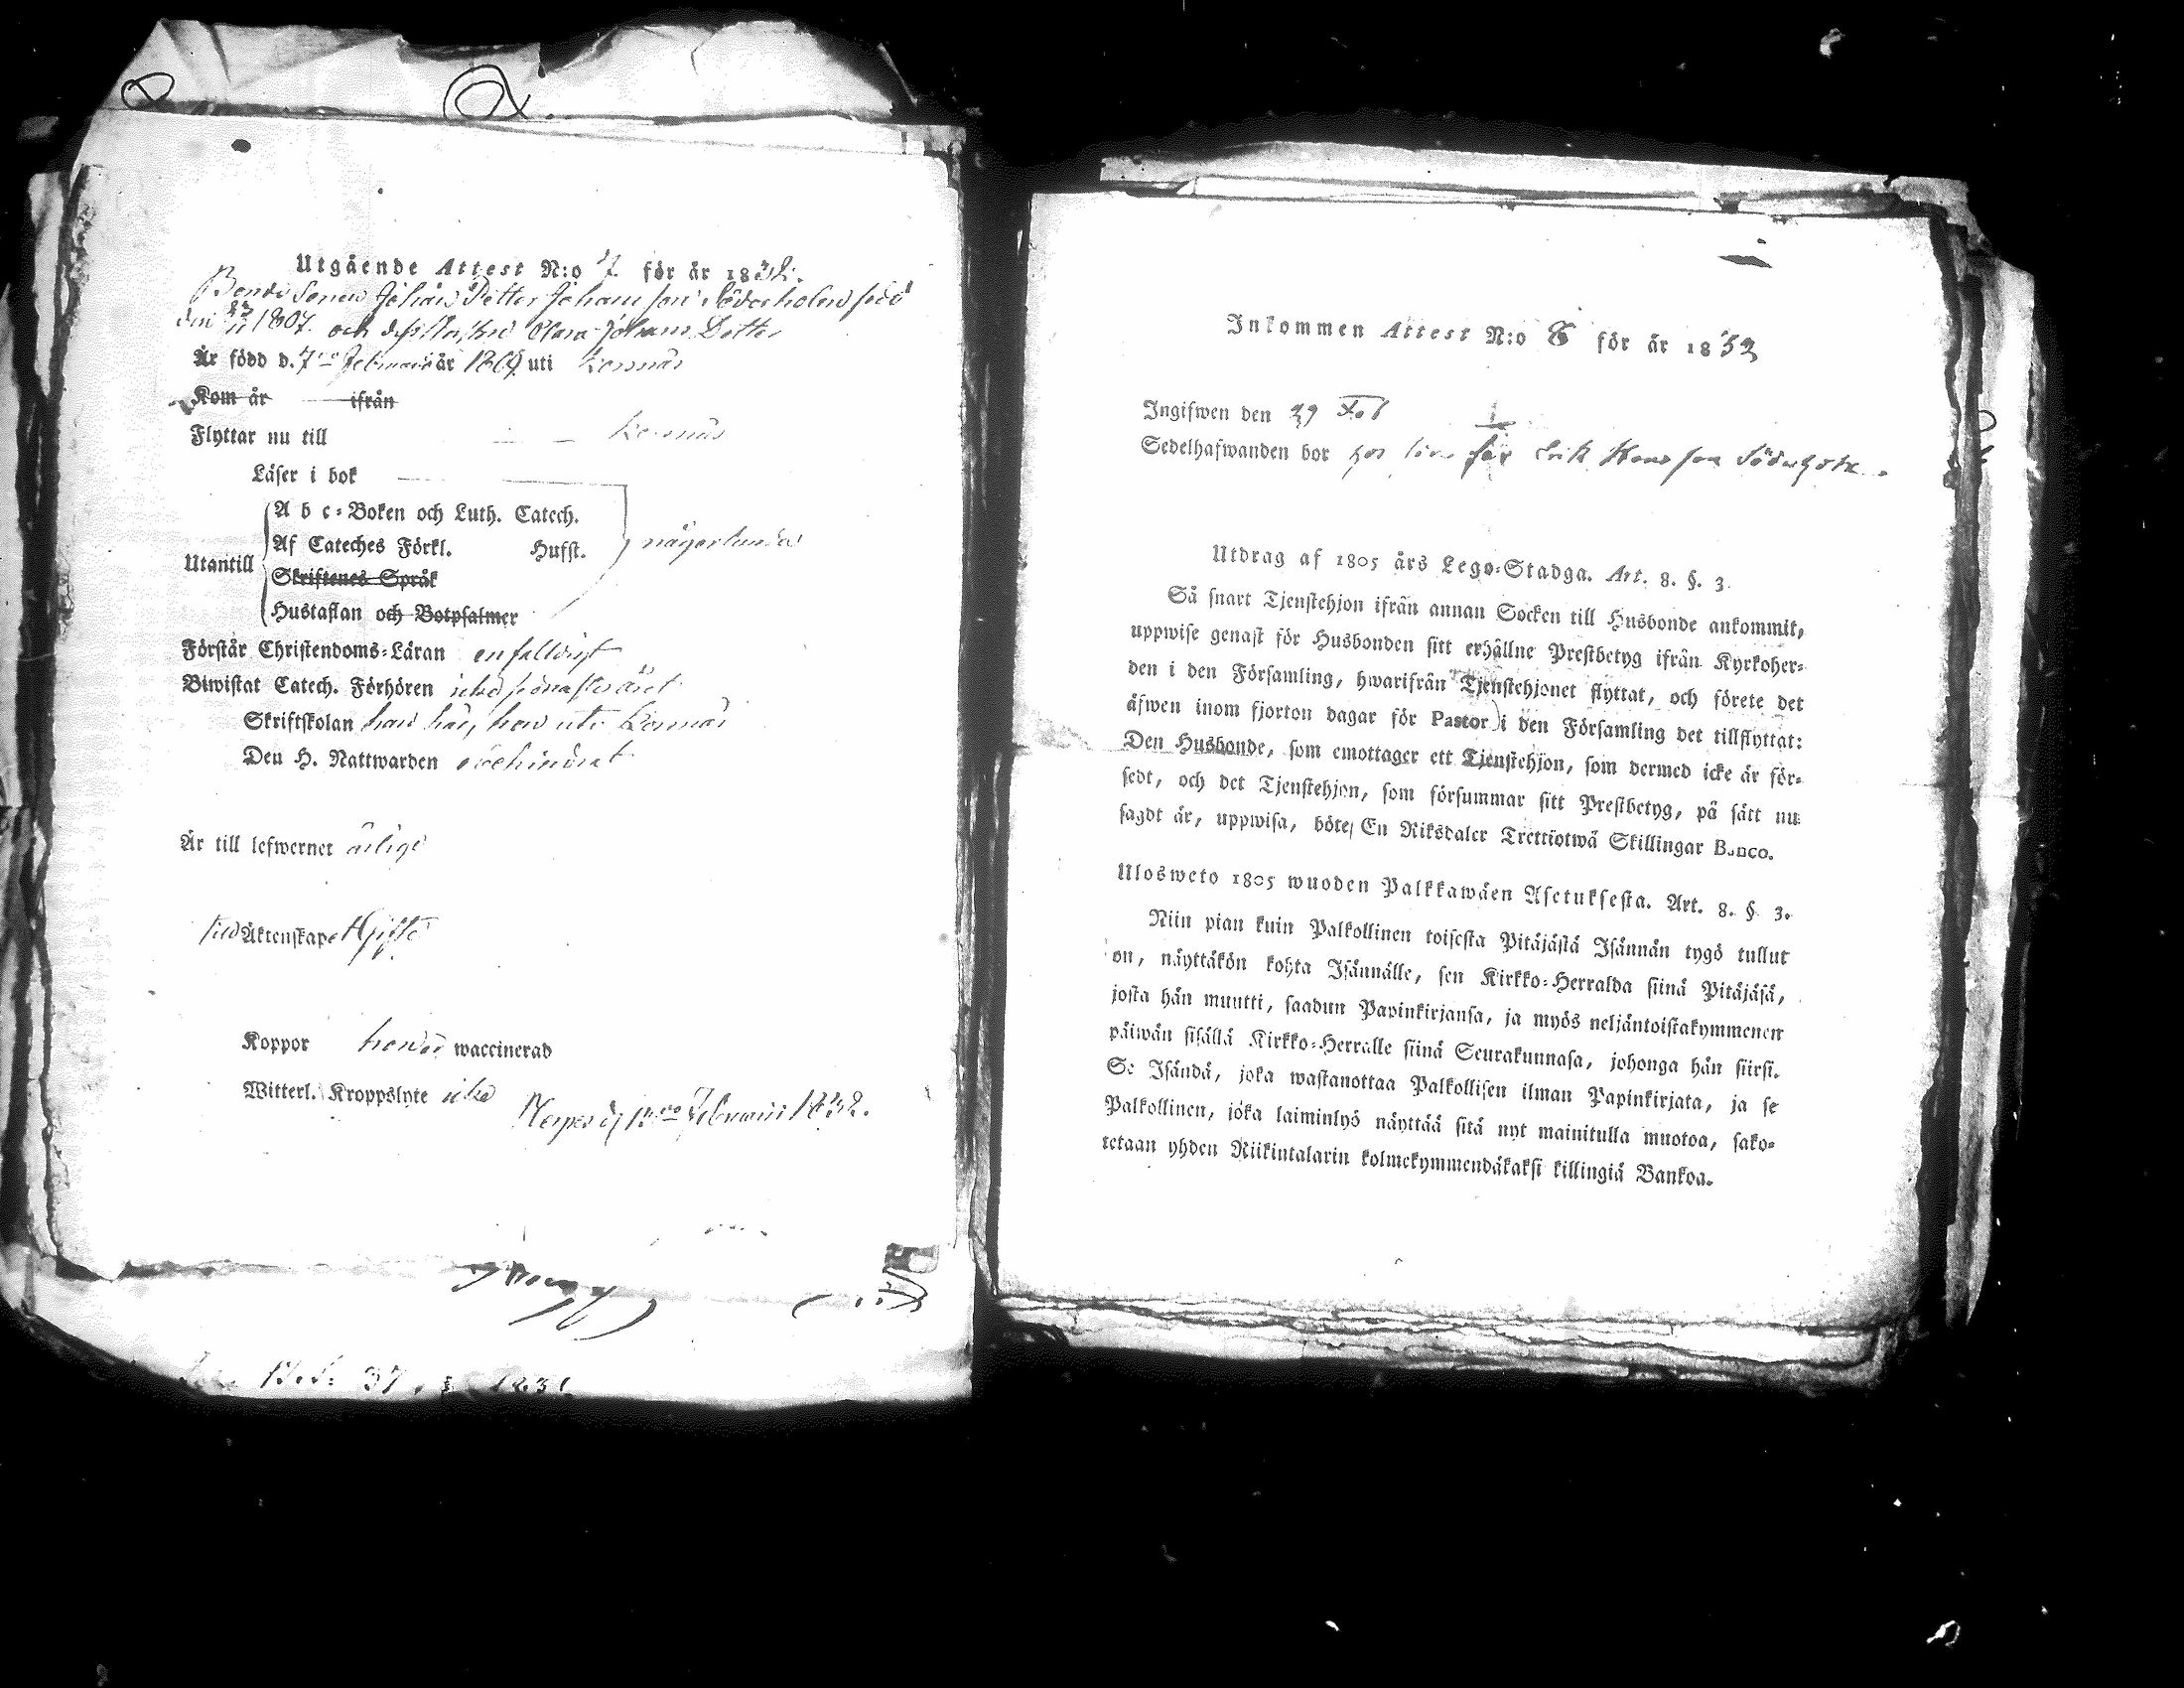 Utgående Attest N:o 7 för år 1832.
Bonde Sonen Johan Petter Johansson Söderholm född
den 23/11 1807. och dess hustru Clara Johans Dotter
Är född d. 7de Februarii år 1809 uti Korsnäs
Kom år ifrån
Flyttar nu till Korsnäs
Läser i bok
Utantill
A b c-Boken och Luth. Catech.
Af Cateches Förkl. Husst.
någorlunda
Skriftenes Språk
Hustaflan och Botpsalmer
Förstår Christendoms-Läran enfalldigt
Biwistat Catech. Förhören icke sednaste året
Skriftskolan han här, hon uti Korsnäs
Den H. Nattwarden oförhindrat
Är till lefwernet ärlige
till Äktenskape Gifte
Koppor waccinerad
Witterl. Kroppslyte icke
Februarii 1832.
Inkommen Attest N:o 8 för år 1832
Ingifwen den 29 Feb
Sedelhafwanden bor hos far Erik Hansson
Utdrag af 1805 års Lego-Stadga. Art. 8. §. 3.
Så snart Tjenstehjon ifrån annan Socken till Husbonde ankommit,
uppwise genast för Husbonden sitt erhållne Prestbetyg ifrån Kyrkoher-
den i den Församling, hwarifrån Tjenstehjonet flyttat, och förete det
äfwen inom fjorton dagar för Pastor i den Församling det tillflyttat:
Den Husbonde, som emottager ett Tjenstehjon, som dermed icke är för-
sedt, och det Tjenstehjon, som försummar sitt Prestbetyg, på sätt nu
sagdt är, uppwisa, böte En Riksdaler Trettiotwå Skillingar Banco.
Ulosweto 1805 wuoden Palkkawäen Asetuksesta. Art. 8. § 3.
Niin pian kuin Palkollinen toisesta Pitäjästä Isännän tygö tullut
on, näyttäkön kohta Isännälle, sen Kirkko-Herralda siinä Pitäjäsä,
josta hän muutti, saadun Papinkirjansa, ja myös neljäntoistakymmenen
päiwän sisällä Kirkko-Herralle siinä Seurakunnasa, johonga hän siirsi.
Se Isändä, joka wastanottaa Palkollisen ilman Papinkirjata, ja se
Palkollinen, joka laiminlyö näyttää sitä nyt mainitulla muotoa, sako-
tetaan yhden Riikintalarin kolmekymmendäkaksi killingiä Bankoa.